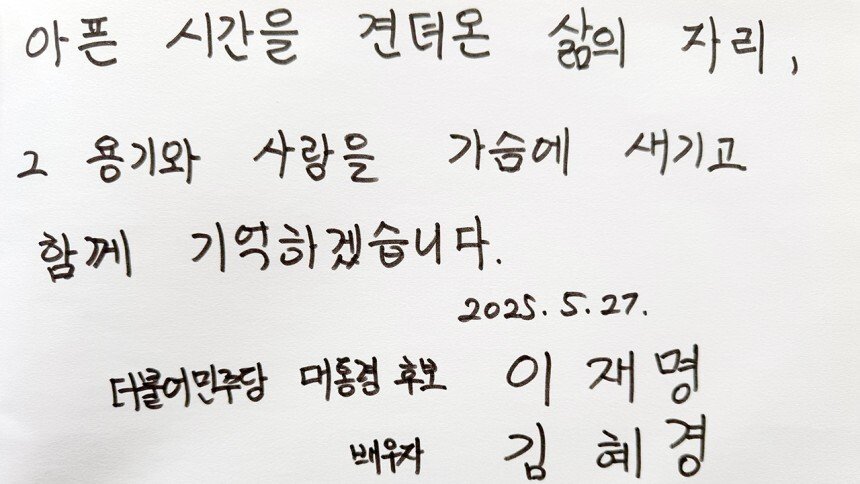 아픈 시간을 견뎌온 삶의 자리,
그 용기와 사랑을 가슴에 새기고
함께 기억하겠습니다.
2025. 5. 27.
더불어민주당 대통령 후보 이재명
배우자 김혜경